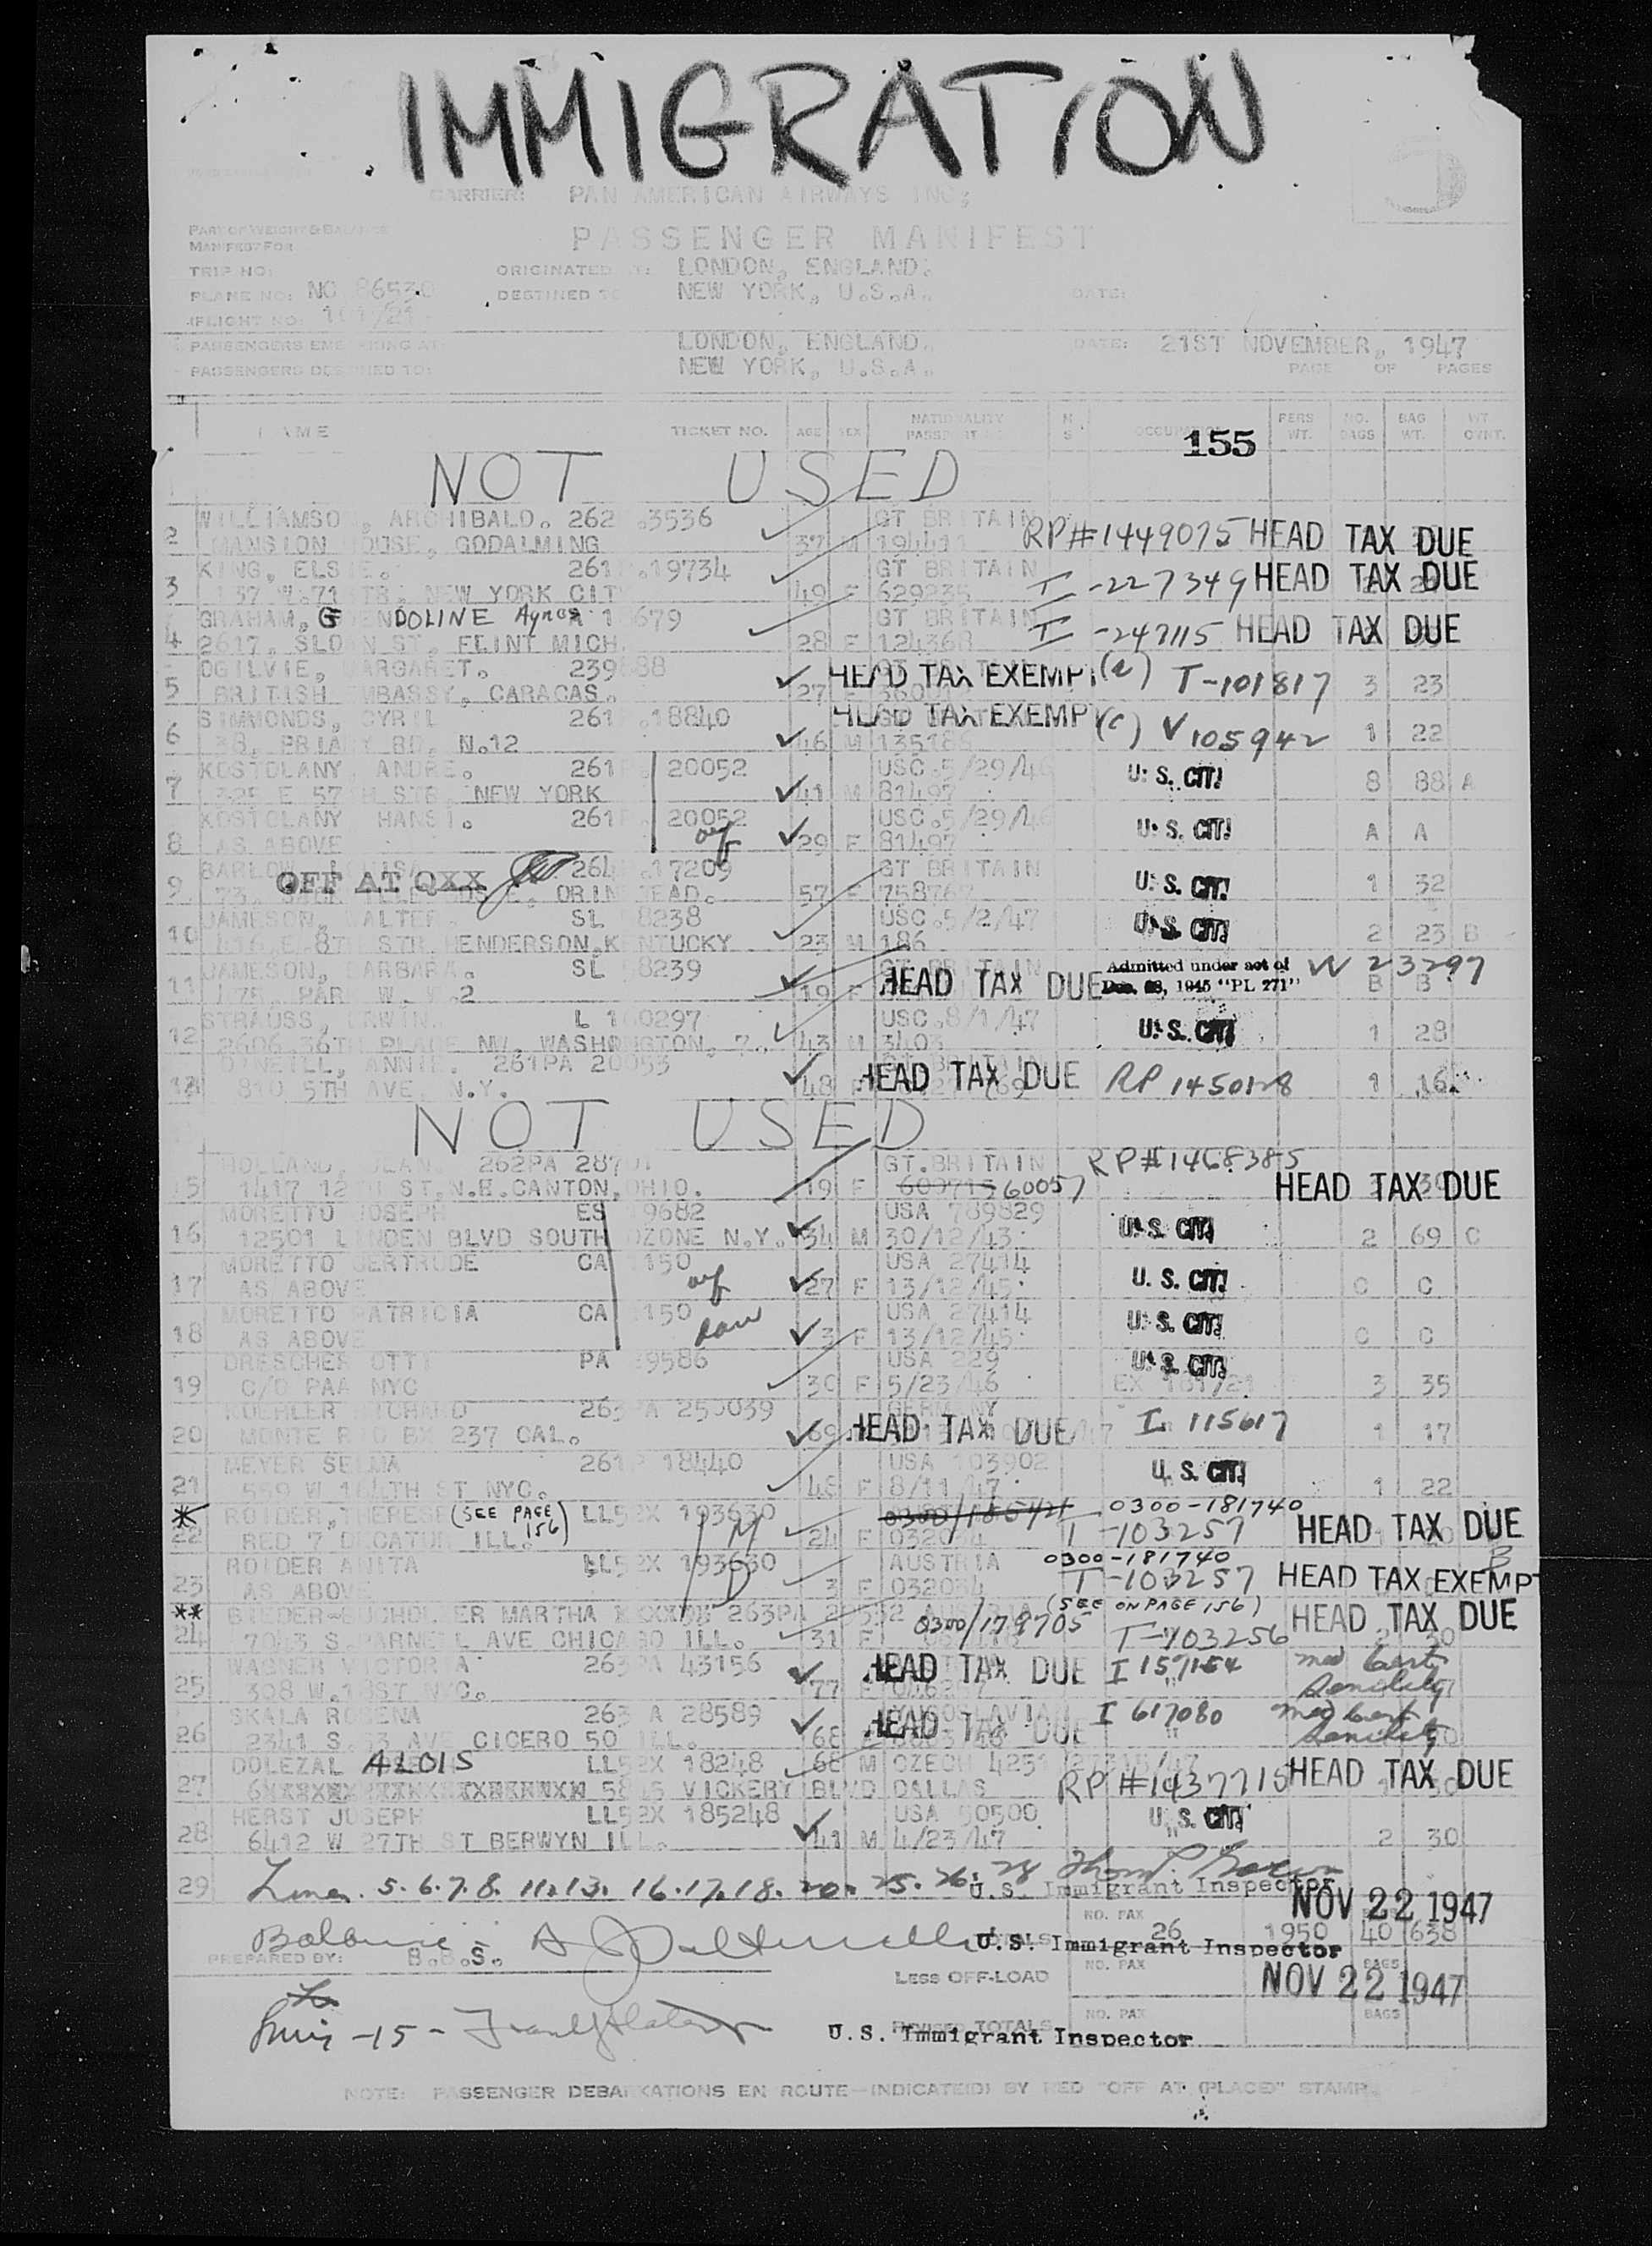 IMMIGRATION
CARRIER: PAN AMERICAN AIRWAYS INC;
PART OF WEIGHT & BALANCE
MANIFEST FOR
PASSENGER MANIFEST
TRIP NO:
ORIGINATED AT: LONDON, ENGLAND.
PLANE NO: NC 86530
DESTINED TO NEW YORK, U.S.A. DATE:
FLIGHT NO: 101/21
PASSENGERS EMBARKING AT: LONDON, ENGLAND. DATE: 21ST NOVEMBER, 1947
PASSENGERS DESTINED TO: NEW YORK, U.S.A. PAGE OF PAGES
NAME TICKET NO. AGE SEX NATIONALITY PASSPORT NO. N S OCCUPATION PERS WT. NO. BAGS BAG WT. WT. OVNT.
155
1 NOT USED
WILLIAMSON, ARCHIBALD. 262 .3536 GT BRITAIN RP#1449075 HEAD TAX DUE
2 MANSION HOUSE, GODALMING 37 M
KING, ELSIE. 261 .19734 GT BRITAIN I-227349 HEAD TAX DUE
3 157 W.71 STR. NEW YORK CIT 49 F 629235
GRAHAM, GWENDOLINE Agnes 679 GT BRITAIN I-247115 HEAD TAX DUE
4 2617, SLOAN ST, FLINT MICH. 28 F 124368
OGILVIE, MARGARET. 239 88 HEAD TAX EXEMPT (2) T-101817
5 BRITISH EMBASSY, CARACAS. 27 3 23
SIMMONDS, CYRIL 261 .18840 HEAD TAX EXEMPT (c) V105942
6 38, PRIARY RD, N.12 46 M 1 22
KOSTOLANY, ANDRE. 261 20052 USC.5/29/46 U.S. CIT.
7 325 E 57TH STR. NEW YORK 41 M 81497 8 88 A
KOSTOLANY HANSI. 261 20052 USC.5/29/46 U.S. CIT.
8 AS ABOVE 29 F 81497 A A
BARLOW, LOUISA 264 .17209 GT BRITAIN U.S. CIT.
OFF AT QXX
9 57 F 1 32
JAMESON, WALTER. SL 8238 USC.5/2/47 U.S. CIT.
10 416 E 8TH STR. HENDERSON, KENTUCKY 23 M 186 2 23 B
JAMESON, BARBARA. SL 8239 HEAD TAX DUE Admitted under act of W 23297
11 19 F Dec. 28, 1945 "PL 271" B B
STRAUSS, ERWIN. USC.8/1/47 U.S. CIT.
12 2606 36TH PLACE NW. WASHINGTON, 7. 43 M 3403 1 28
O'NEILL, ANNIE. 261PA 20053 HEAD TAX DUE RP 1450128
13 810 5TH AVE. N.Y. 48 F 1 16
NOT USED
HOLLAND, JEAN. 262PA GT.BRITAIN RP#1468385
15 1417 12TH ST.N.E.CANTON, OHIO. 19 F 609715 60057 HEAD TAX DUE
MORETTO JOSEPH ES 9682 USA 789829 U.S. CIT.
16 12501 LINDEN BLVD SOUTH OZONE N.Y. 34 M 30/12/43 2 69 C
MORETTO GERTRUDE CA 150 USA 27414
17 AS ABOVE 27 F 13/12/45 U.S. CIT. C C
MORETTO PATRICIA CA 150 USA 27414
18 AS ABOVE dau 3 F 13/12/45 U.S. CIT. C C
DRESCHER OTTI PA 9586 USA 229 U.S. CIT.
19 C/O PAA NYC 30 F 5/23/46 EX 101/21 3 35
KOEHLER RICHARD 263PA 250039 GERMANY
20 MONTE RIO BX 237 CAL. 69 HEAD TAX DUE I 115617 1 17
MEYER SELMA 261P 18440 USA 103902 U.S. CIT.
21 559 W 164TH ST NYC. 48 F 8/11/47 1 22
* ROIDER, THERESE (SEE PAGE 156) LL52X 193630 0300-181740
22 RED 7 DECATUR ILL. M 24 F T-103257 HEAD TAX DUE
ROIDER ANITA LL52X 193630 AUSTRIA 0300-181740
23 AS ABOVE D 3 F 032034 T-103257 HEAD TAX EXEMPT
** MARTHA 263PA 0300/178705 (SEE ON PAGE 156) HEAD TAX DUE
24 7043 S.PARNELL AVE CHICAGO ILL. 31 F T-103256
WAGNER VICTORIA 263PA 43156 HEAD TAX DUE I 157154 med Cert
25 308 W.18ST NYC. 77 Senility
SKALA ROSENA 263 A 28589 HEAD TAX DUE I 617080 med Cert
26 2341 S.53 AVE CICERO 50 ILL. 68 Senility
DOLEZAL ALOIS LL52X 18248 68 M CZECH
27 VICKERY BLVD DALLAS RP #1437715 HEAD TAX DUE
HERST JOSEPH LL52X 185248 USA 50500 U.S. CIT.
28 6412 W 27TH ST BERWYN ILL. 41 M 4/23/47 2 30
29 Lines. 5.6.7.8. 11.13. 16.17.18. 20. 25. 26. 28
U.S. Immigrant Inspector
NOV 22 1947
NO. PAX 26 1950 40 638
U.S. Immigrant Inspector
PREPARED BY: B.B.S.
LESS OFF-LOAD NO. PAX BAGS
NOV 22 1947
REVISED TOTALS NO. PAX BAGS
-15-
U.S. Immigrant Inspector
NOTE: PASSENGER DEBARKATIONS EN ROUTE—INDICATE(D) BY RED "OFF AT (PLACE)" STAMP.